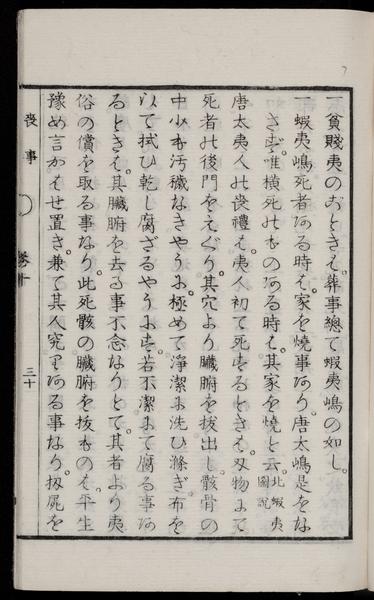 一貧賤夷のおときは。葬事總て蝦夷嶋の如し。
一蝦夷嶋死者ある時は。家を燒事あり。唐太嶋是をな
さず。唯横死のものある時は。其家を燒と云。北蝦夷圖説
唐太夷人の喪禮は。夷人初て死するときは。刄物にて
死者の後門をゑぐり。其穴より臟腑を拔出し。骸骨の
中少も汚穢なきやうに。極めて淨潔に洗ひ滌ぎ。布を
以て拭ひ乾し。腐ざるやうにす。若不潔にて腐る事あ
るときは。其臟腑を去る事不念なりとて。其者より夷
俗の償を取る事なり。此死骸の臟腑を拔ものは。平生
豫め言かはせ置き。兼て其人究りある事なり。扨屍を
喪事
卷十
三十